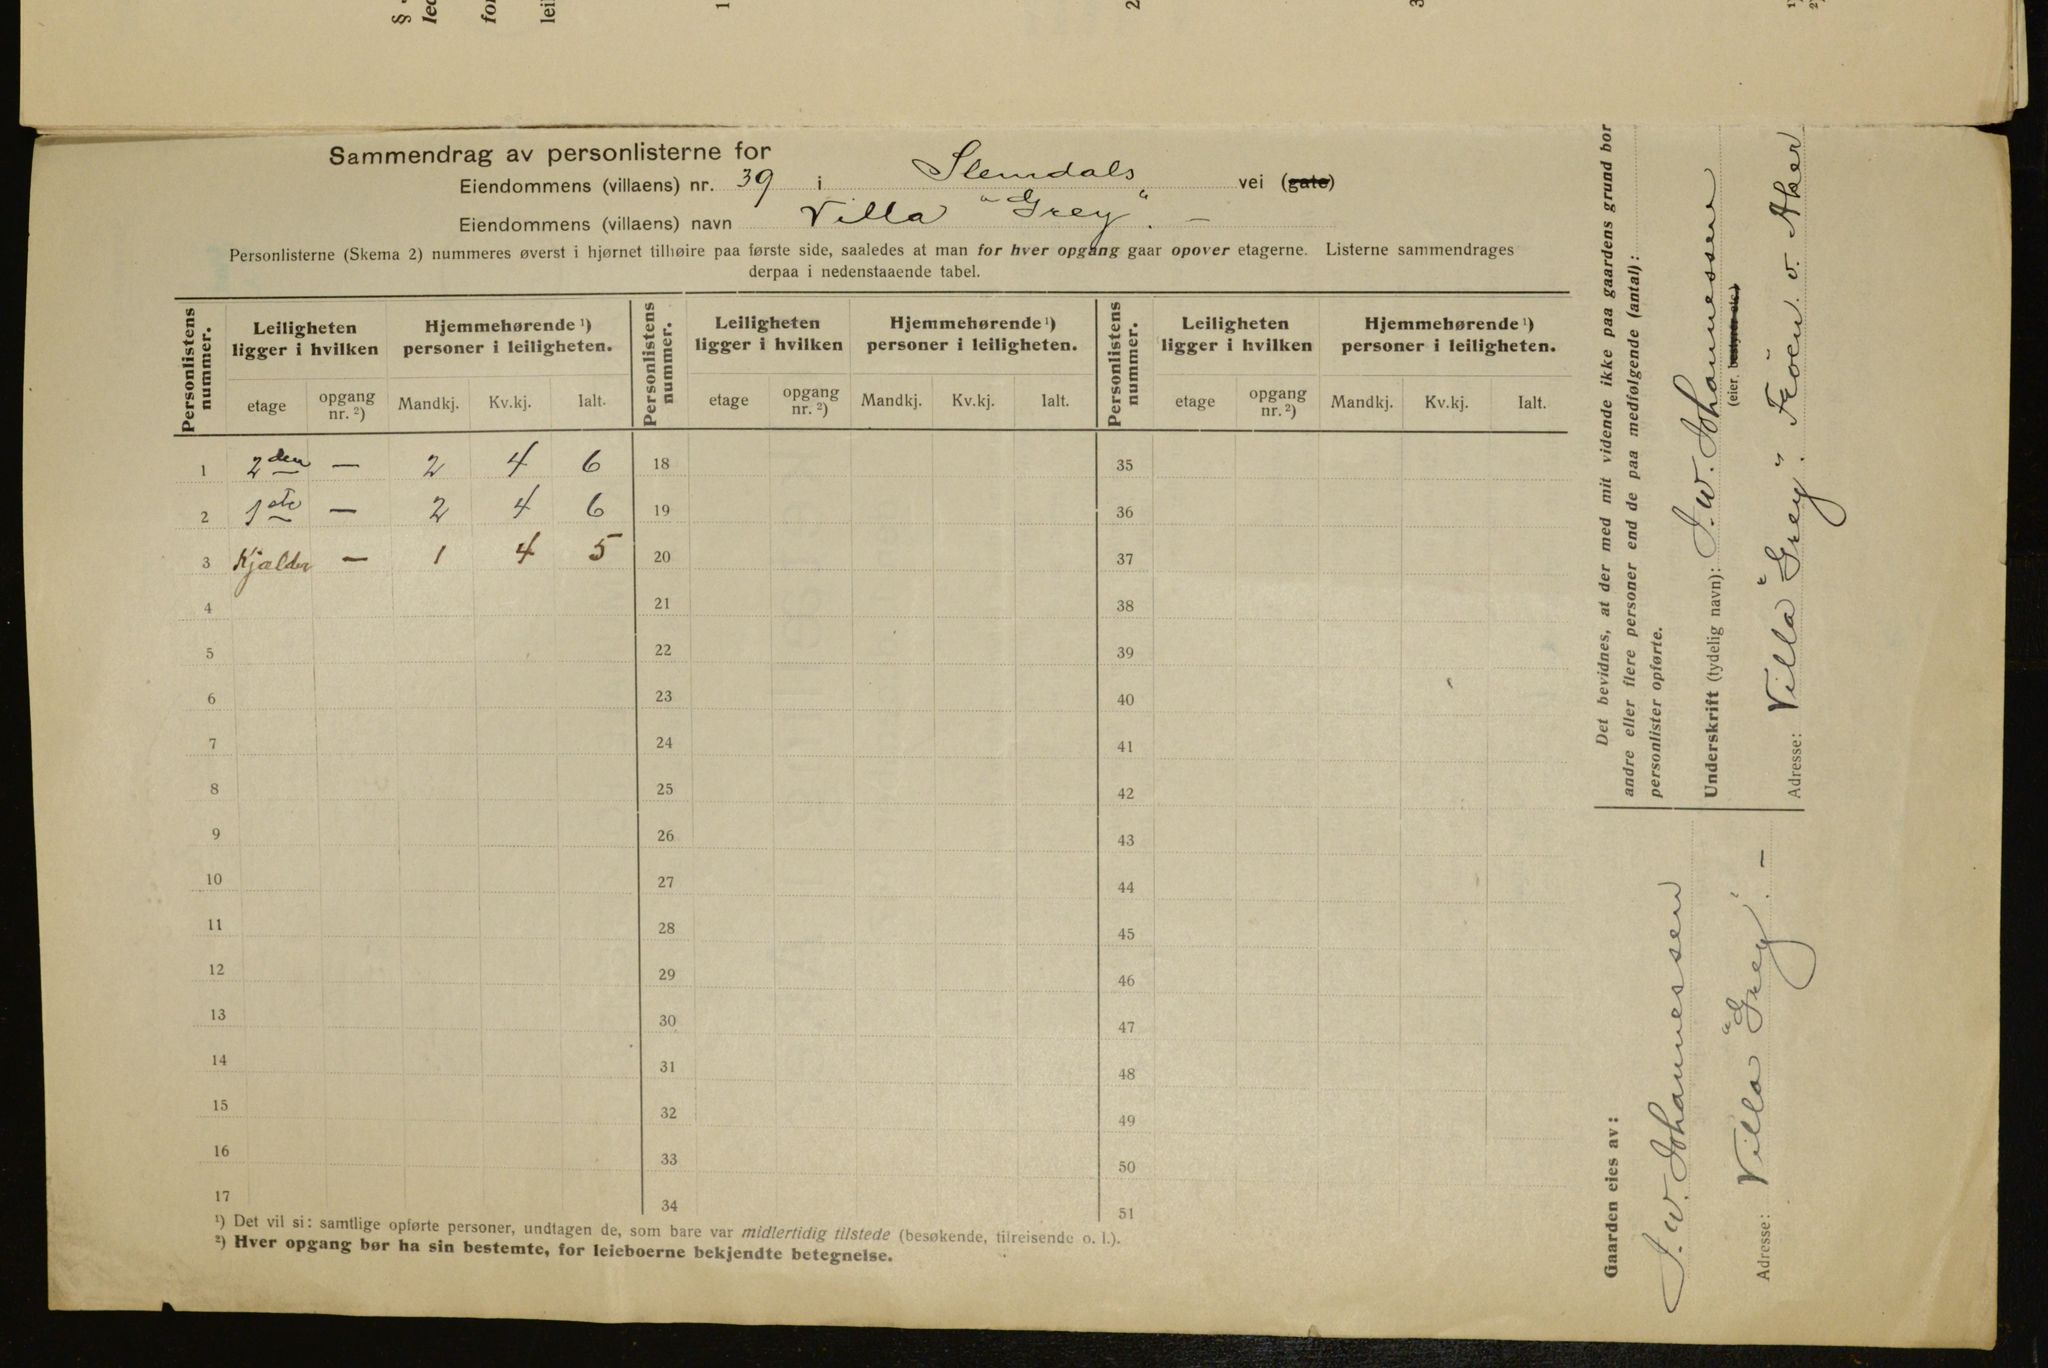 Sammendrag av personlisterne for
Eiendommens (villaens) nr. 39 i Slemdals vei (gate)
Eiendommens (villaens) navn Villa "Grey".—
Personlisterne (Skema 2) nummeres øverst i hjørnet tilhøire paa første side, saaledes at man for hver opgang gaar opover etagerne. Listerne sammendrages
derpaa i nedenstaaende tabel.
Personlistens nummer. Leiligheten ligger i hvilken Hjemmehørende ¹) personer i leiligheten. Personlistens nummer. Leiligheten ligger i hvilken Hjemmehørende ¹) personer i leiligheten. Personlistens nummer. Leiligheten ligger i hvilken Hjemmehørende ¹) personer i leiligheten.
etage opgang nr. ²) Mandkj. Kv.kj. Ialt. etage opgang nr. ²) Mandkj. Kv.kj. Ialt. etage opgang nr. ²) Mandkj. Kv.kj. Ialt.
1 2den — 2 4 6 18 35
2 1ste — 2 4 6 19 36
3 Kjælder — 1 4 5 20 37
4 21 38
5 22 39
6 23 40
7 24 41
8 25 42
9 26 43
10 27 44
11 28 45
12 29 46
13 30 47
14 31 48
15 32 49
16 33 50
17 34 51
¹) Det vil si: samtlige opførte personer, undtagen de, som bare var midlertidig tilstede (besøkende, tilreisende o. l.).
²) Hver opgang bør ha sin bestemte, for leieboerne bekjendte betegnelse.
Det bevidnes, at der med mit vidende ikke paa gaardens grund bor
andre eller flere personer end de paa medfølgende (antal):
personlister opførte.
Underskrift (tydelig navn): J. W. Johannessen
(eier, bestyrer etc.)
Adresse: Villa "Grey". Fröen v. Aker
Gaarden eies av:
J. W. Johannessen
Adresse: Villa "Grey".—